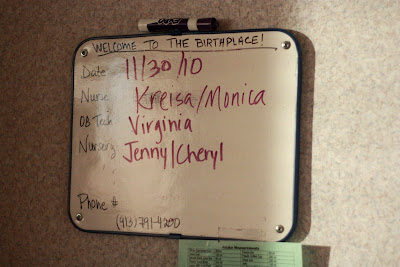 EXPO
WELCOME TO THE BIRTHPLACE!
Date 11/30/10
Nurse Kreisa/Monica
OB Tech Virginia
Nursery Jenny/Cheryl
Phone #
(413) 791-4200